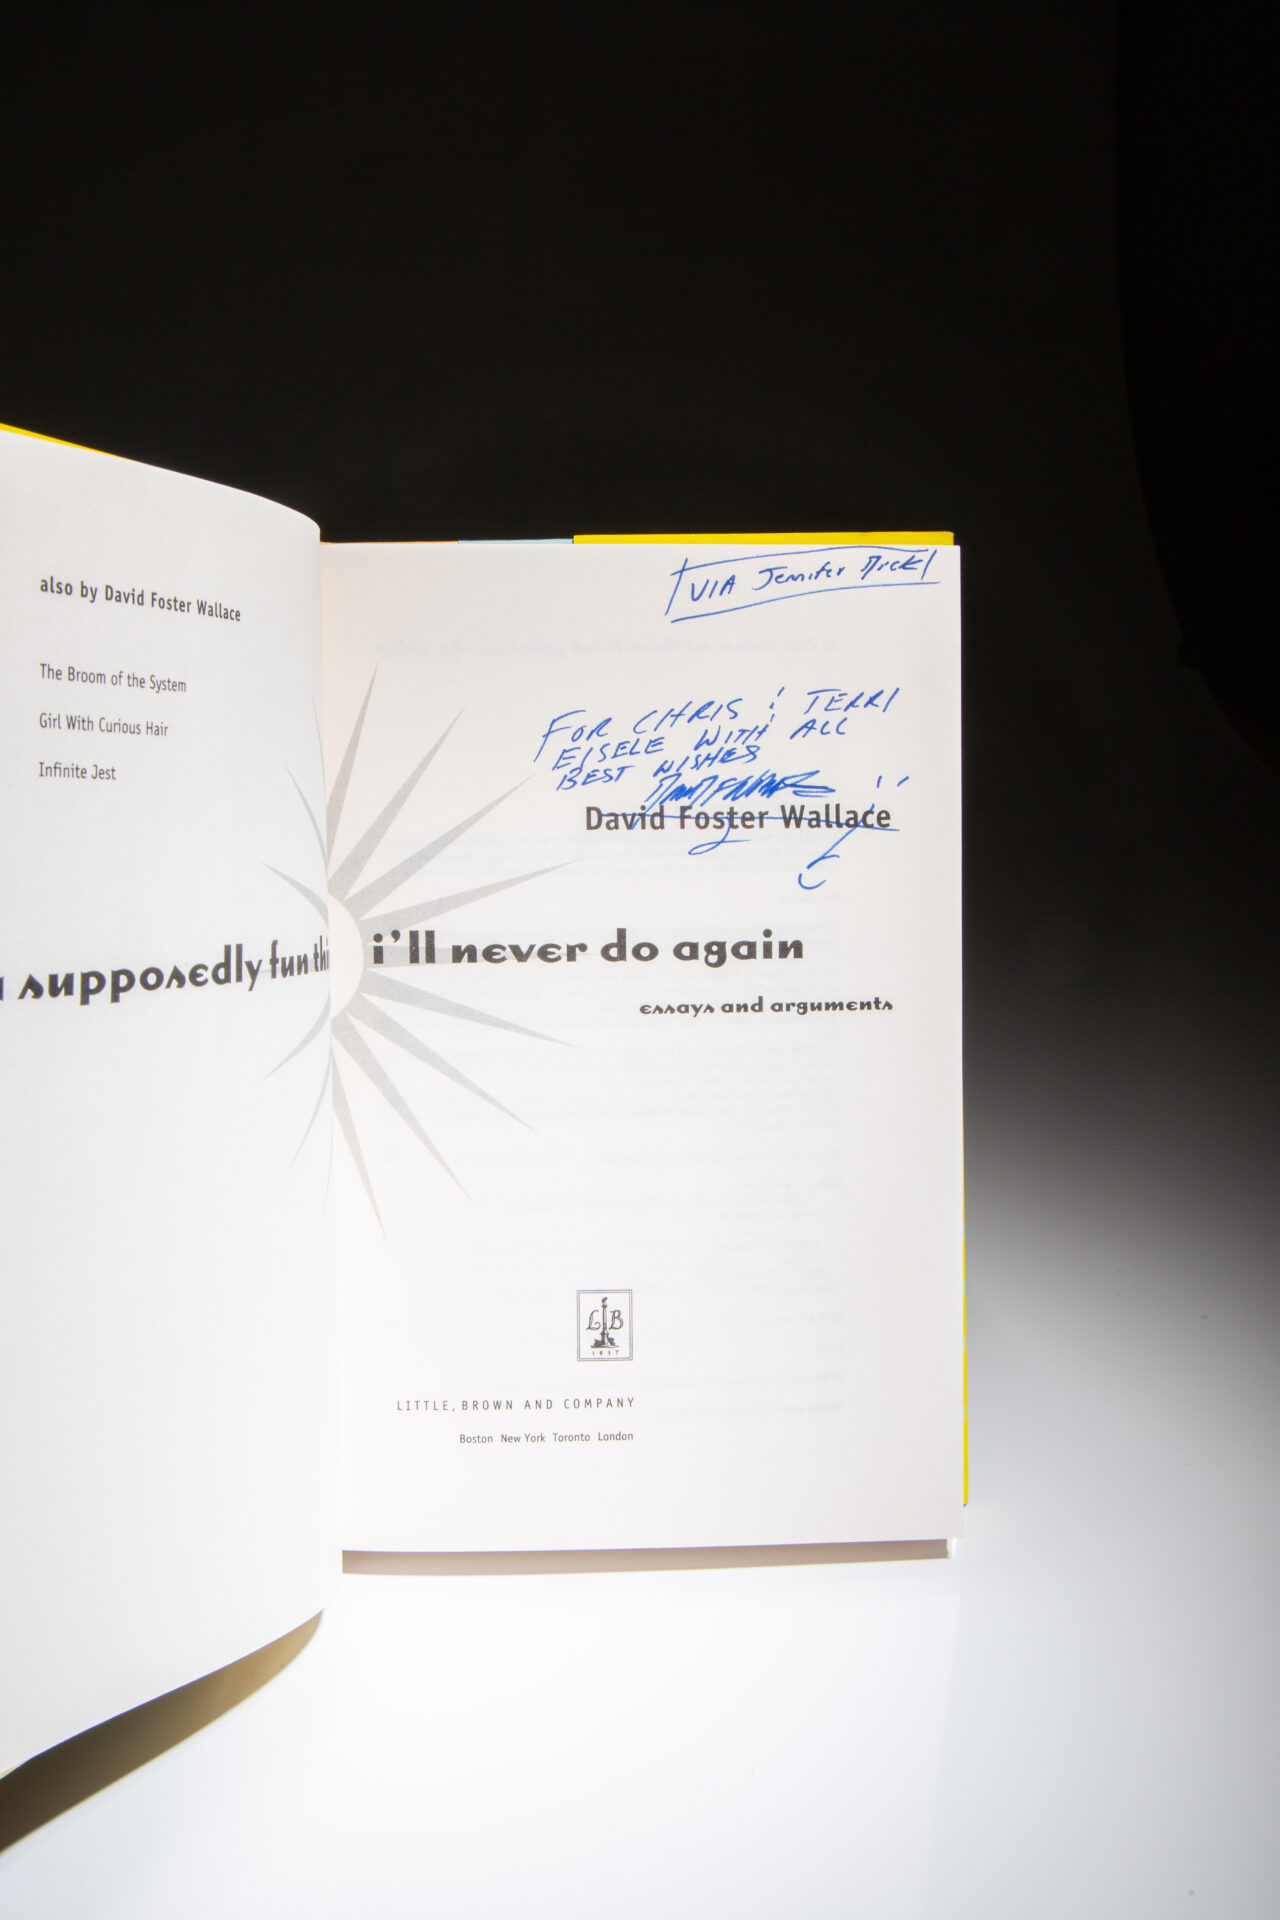 also by David Foster Wallace
The Broom of the System
Girl With Curious Hair
Infinite Jest
a supposedly fun thi
VIA Jennifer
FOR CHRIS & TERRI
EISELE WITH ALL
BEST WISHES
David Foster Wallace
i'll never do again
essays and arguments
L B
1837
LITTLE, BROWN AND COMPANY
Boston New York Toronto London